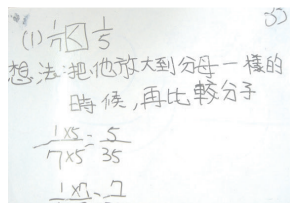 (1) 1/7 < 1/5
想法:把他放大到分母一樣的
時候,再比較分子
1×5/7×5 = 5/35
1×7 7